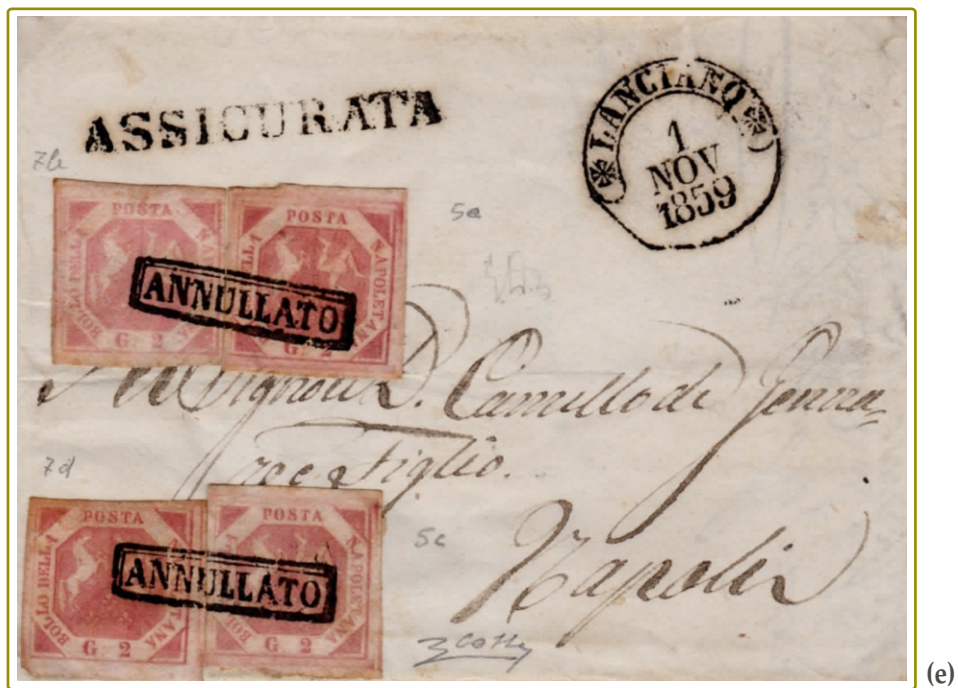 ASSICURATA
LANCIANO
1
NOV
1859
7b
5a
POSTA
NAPOLETANA
BOLLO DELLA
G 2
POSTA
NAPOLETANA
BOLLO DELLA
G 2
ANNULLATO
D. Camillo di Genna=
ro e Figlio.
7d
5c
POSTA
NAPOLETANA
BOLLO DELLA
G 2
POSTA
NAPOLETANA
G 2
ANNULLATO
Napoli
(e)